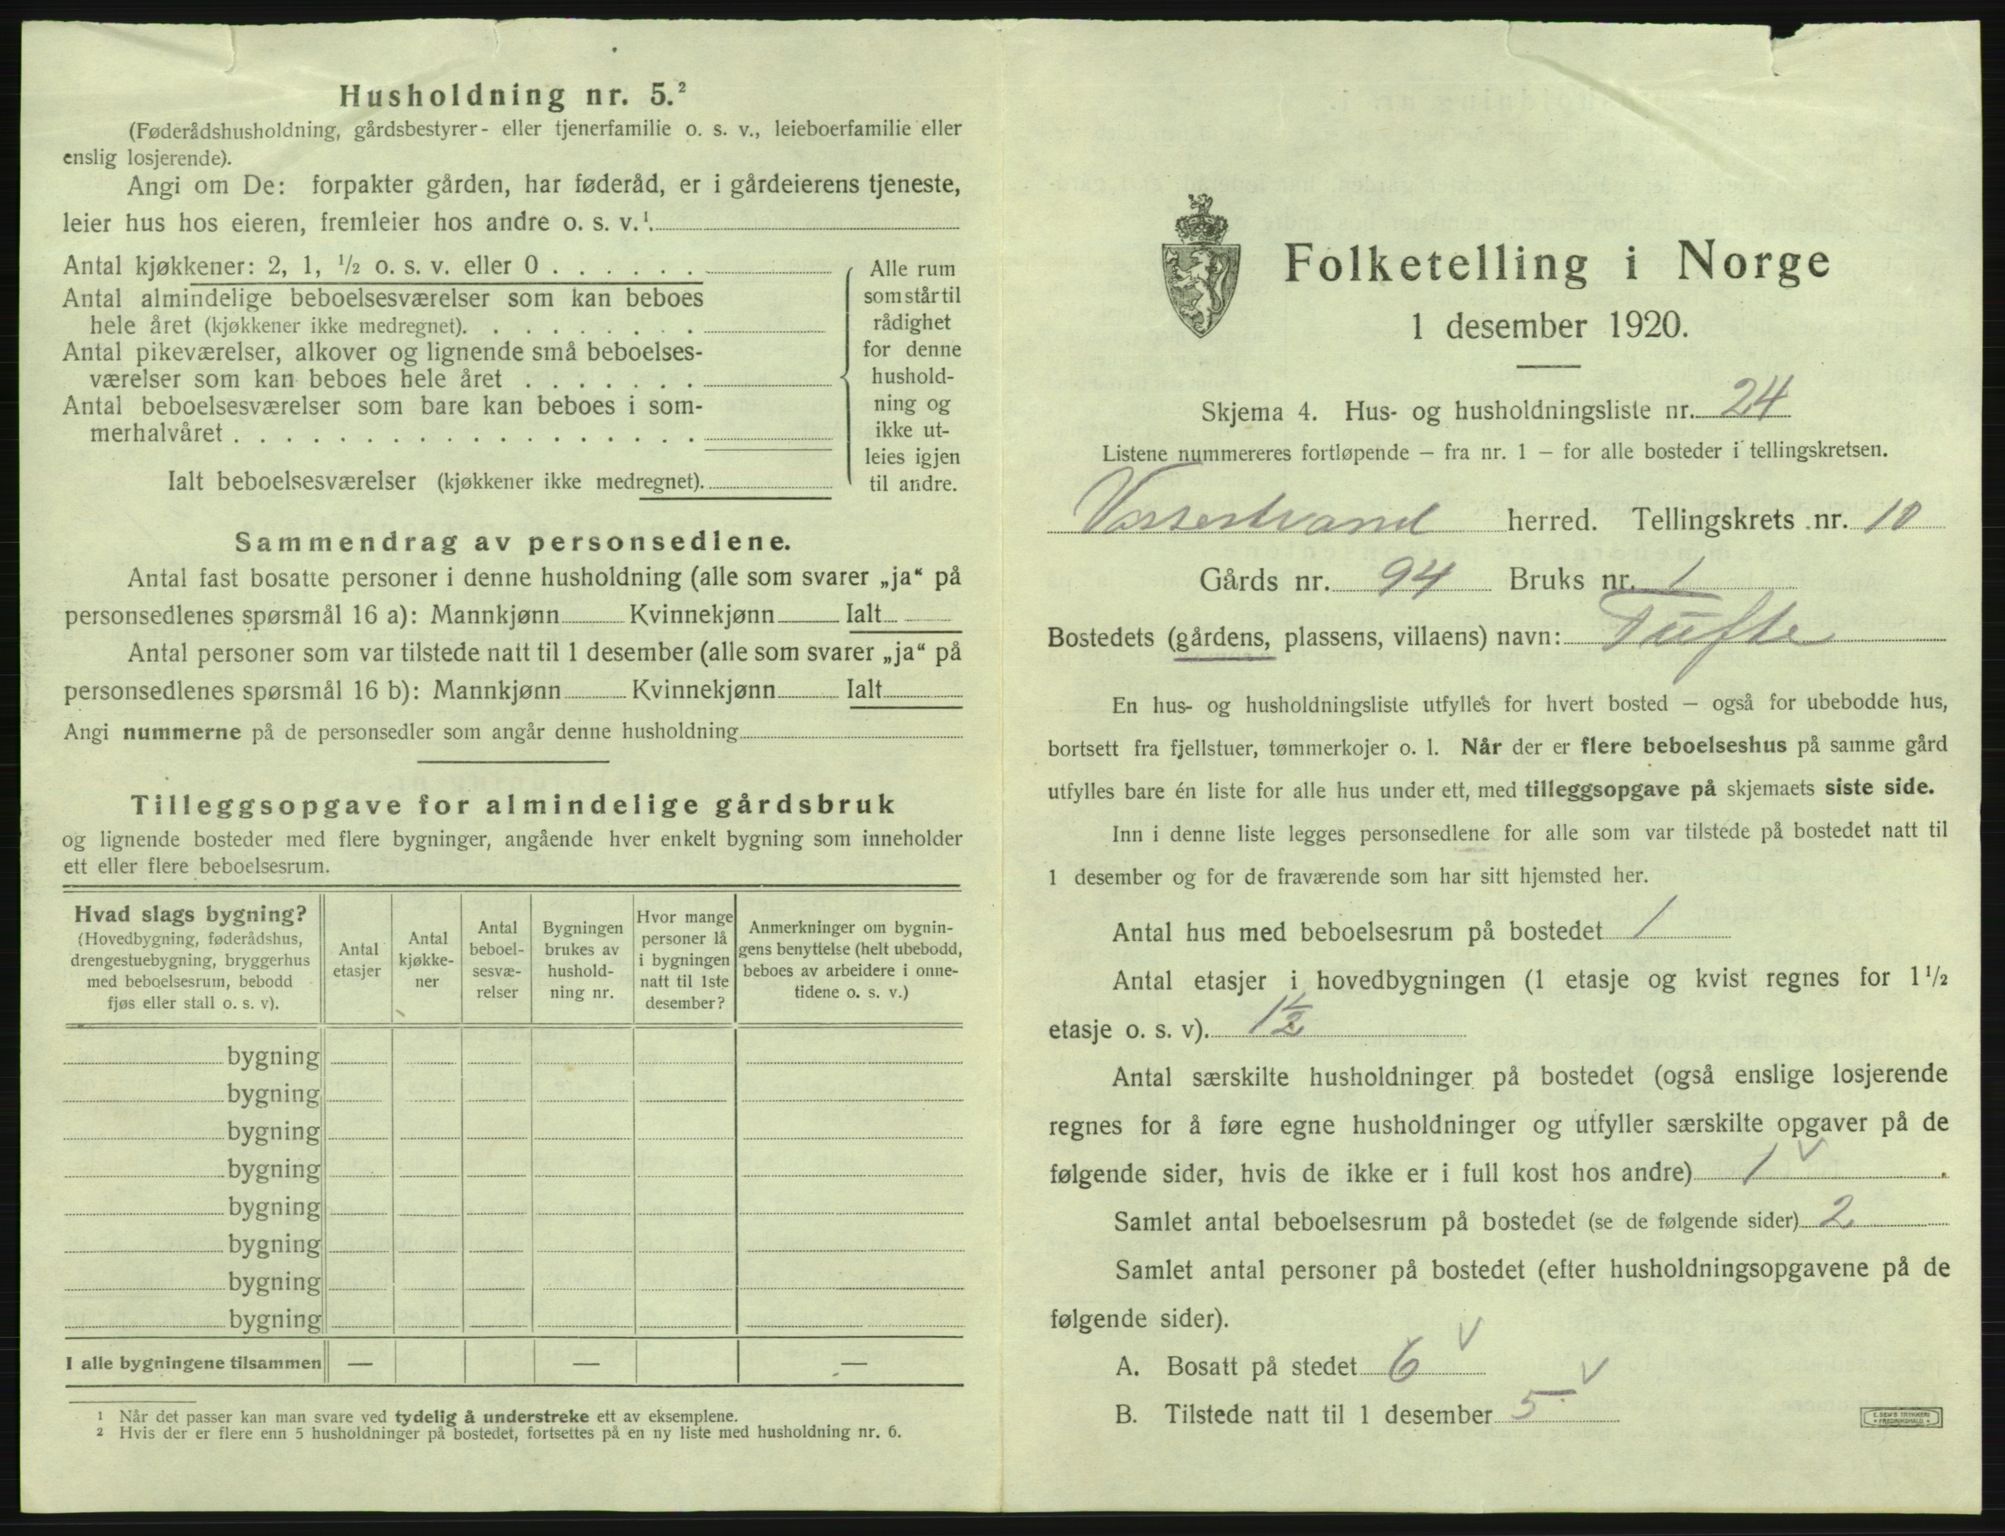 Husholdning nr. 5.²
(Føderådshusholdning, gårdsbestyrer- eller tjenerfamilie o. s. v., leieboerfamilie eller
enslig losjerende).
Angi om De: forpakter gården, har føderåd, er i gårdeierens tjeneste,
leier hus hos eieren, fremleier hos andre o. s. v.¹
Antal kjøkkener: 2, 1, ½ o. s. v. eller 0
Antal almindelige beboelsesværelser som kan beboes
hele året (kjøkkener ikke medregnet)
Antal pikeværelser, alkover og lignende små beboelses-
værelser som kan beboes hele året
Antal beboelsesværelser som bare kan beboes i som-
merhalvåret
Ialt beboelsesværelser (kjøkkener ikke medregnet)
Alle rum
som står til
rådighet
for denne
hushold-
ning og
ikke ut-
leies igjen
til andre.
Sammendrag av personsedlene.
Antal fast bosatte personer i denne husholdning (alle som svarer „ja“ på
personsedlenes spørsmål 16 a): Mannkjønn Kvinnekjønn Ialt
Antal personer som var tilstede natt til 1 desember (alle som svarer „ja“ på
personsedlenes spørsmål 16 b): Mannkjønn Kvinnekjønn Ialt
Angi nummerne på de personsedler som angår denne husholdning
Tilleggsopgave for almindelige gårdsbruk
og lignende bosteder med flere bygninger, angående hver enkelt bygning som inneholder
ett eller flere beboelsesrum.
Hvad slags bygning?
(Hovedbygning, føderådshus,
drengestuebygning, bryggerhus
med beboelsesrum, bebodd
fjøs eller stall o. s. v).
Antal
etasjer
Antal
kjøkke-
ner
Antal
beboel-
sesvæ-
relser
Bygningen
brukes av
hushold-
ning nr.
Hvor mange
personer lå
i bygningen
natt til 1ste
desember?
Anmerkninger om bygnin-
gens benyttelse (helt ubebodd,
beboes av arbeidere i onne-
tidene o. s. v.)
bygning
bygning
bygning
bygning
bygning
bygning
bygning
bygning
I alle bygningene tilsammen — — —
¹ Når det passer kan man svare ved tydelig å understreke ett av eksemplene.
² Hvis der er flere enn 5 husholdninger på bostedet, fortsettes på en ny liste med husholdning nr. 6.
Folketelling i Norge
1 desember 1920.
Skjema 4. Hus- og husholdningsliste nr. 24
Listene nummereres fortløpende – fra nr. 1 – for alle bosteder i tellingskretsen.
Vossestrand herred. Tellingskrets nr. 10
Gårds nr. 94 Bruks nr. 1
Bostedets (gårdens, plassens, villaens) navn: Tufte
En hus- og husholdningsliste utfylles for hvert bosted – også for ubebodde hus,
bortsett fra fjellstuer, tømmerkojer o. l. Når der er flere beboelseshus på samme gård
utfylles bare én liste for alle hus under ett, med tilleggsopgave på skjemaets siste side.
Inn i denne liste legges personsedlene for alle som var tilstede på bostedet natt til
1 desember og for de fraværende som har sitt hjemsted her.
Antal hus med beboelsesrum på bostedet 1
Antal etasjer i hovedbygningen (1 etasje og kvist regnes for 1½
etasje o. s. v). 1½
Antal særskilte husholdninger på bostedet (også enslige losjerende
regnes for å føre egne husholdninger og utfyller særskilte opgaver på de
følgende sider, hvis de ikke er i full kost hos andre) 1 v
Samlet antal beboelsesrum på bostedet (se de følgende sider) 2
Samlet antal personer på bostedet (efter husholdningsopgavene på de
følgende sider).
A. Bosatt på stedet 6 v
B. Tilstede natt til 1 desember 5 v